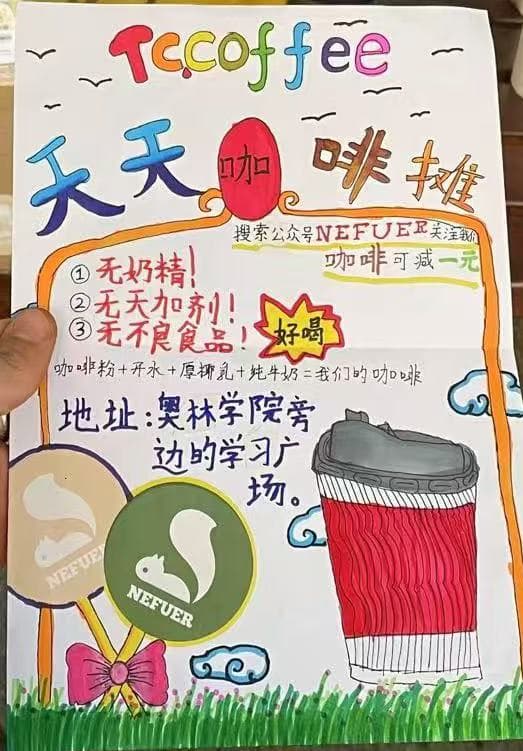 Tc.coffee
天天咖啡摊
搜索公众号NEFUER关注我们
咖啡可减一元
① 无奶精!
② 无天加剂!
③ 无不良食品!
好喝
咖啡粉+开水+厚椰乳+纯牛奶=我们的咖啡
地址:奥林学院旁
边的学习广
场。
NEFUER
NEFUER